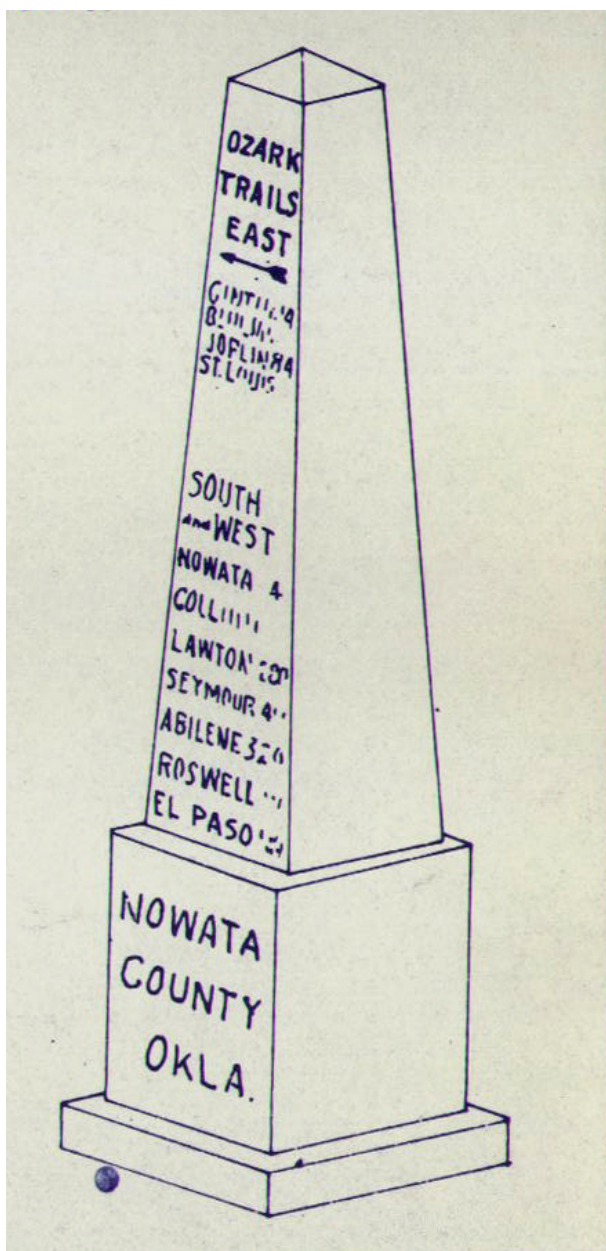 OZARK
TRAILS
EAST
JOFLIN 84
ST. LOUIS
SOUTH
and WEST
NOWATA 4
LAWTON
SEYMOUR
ABILENE
ROSWELL
EL PASO
NOWATA
COUNTY
OKLA.